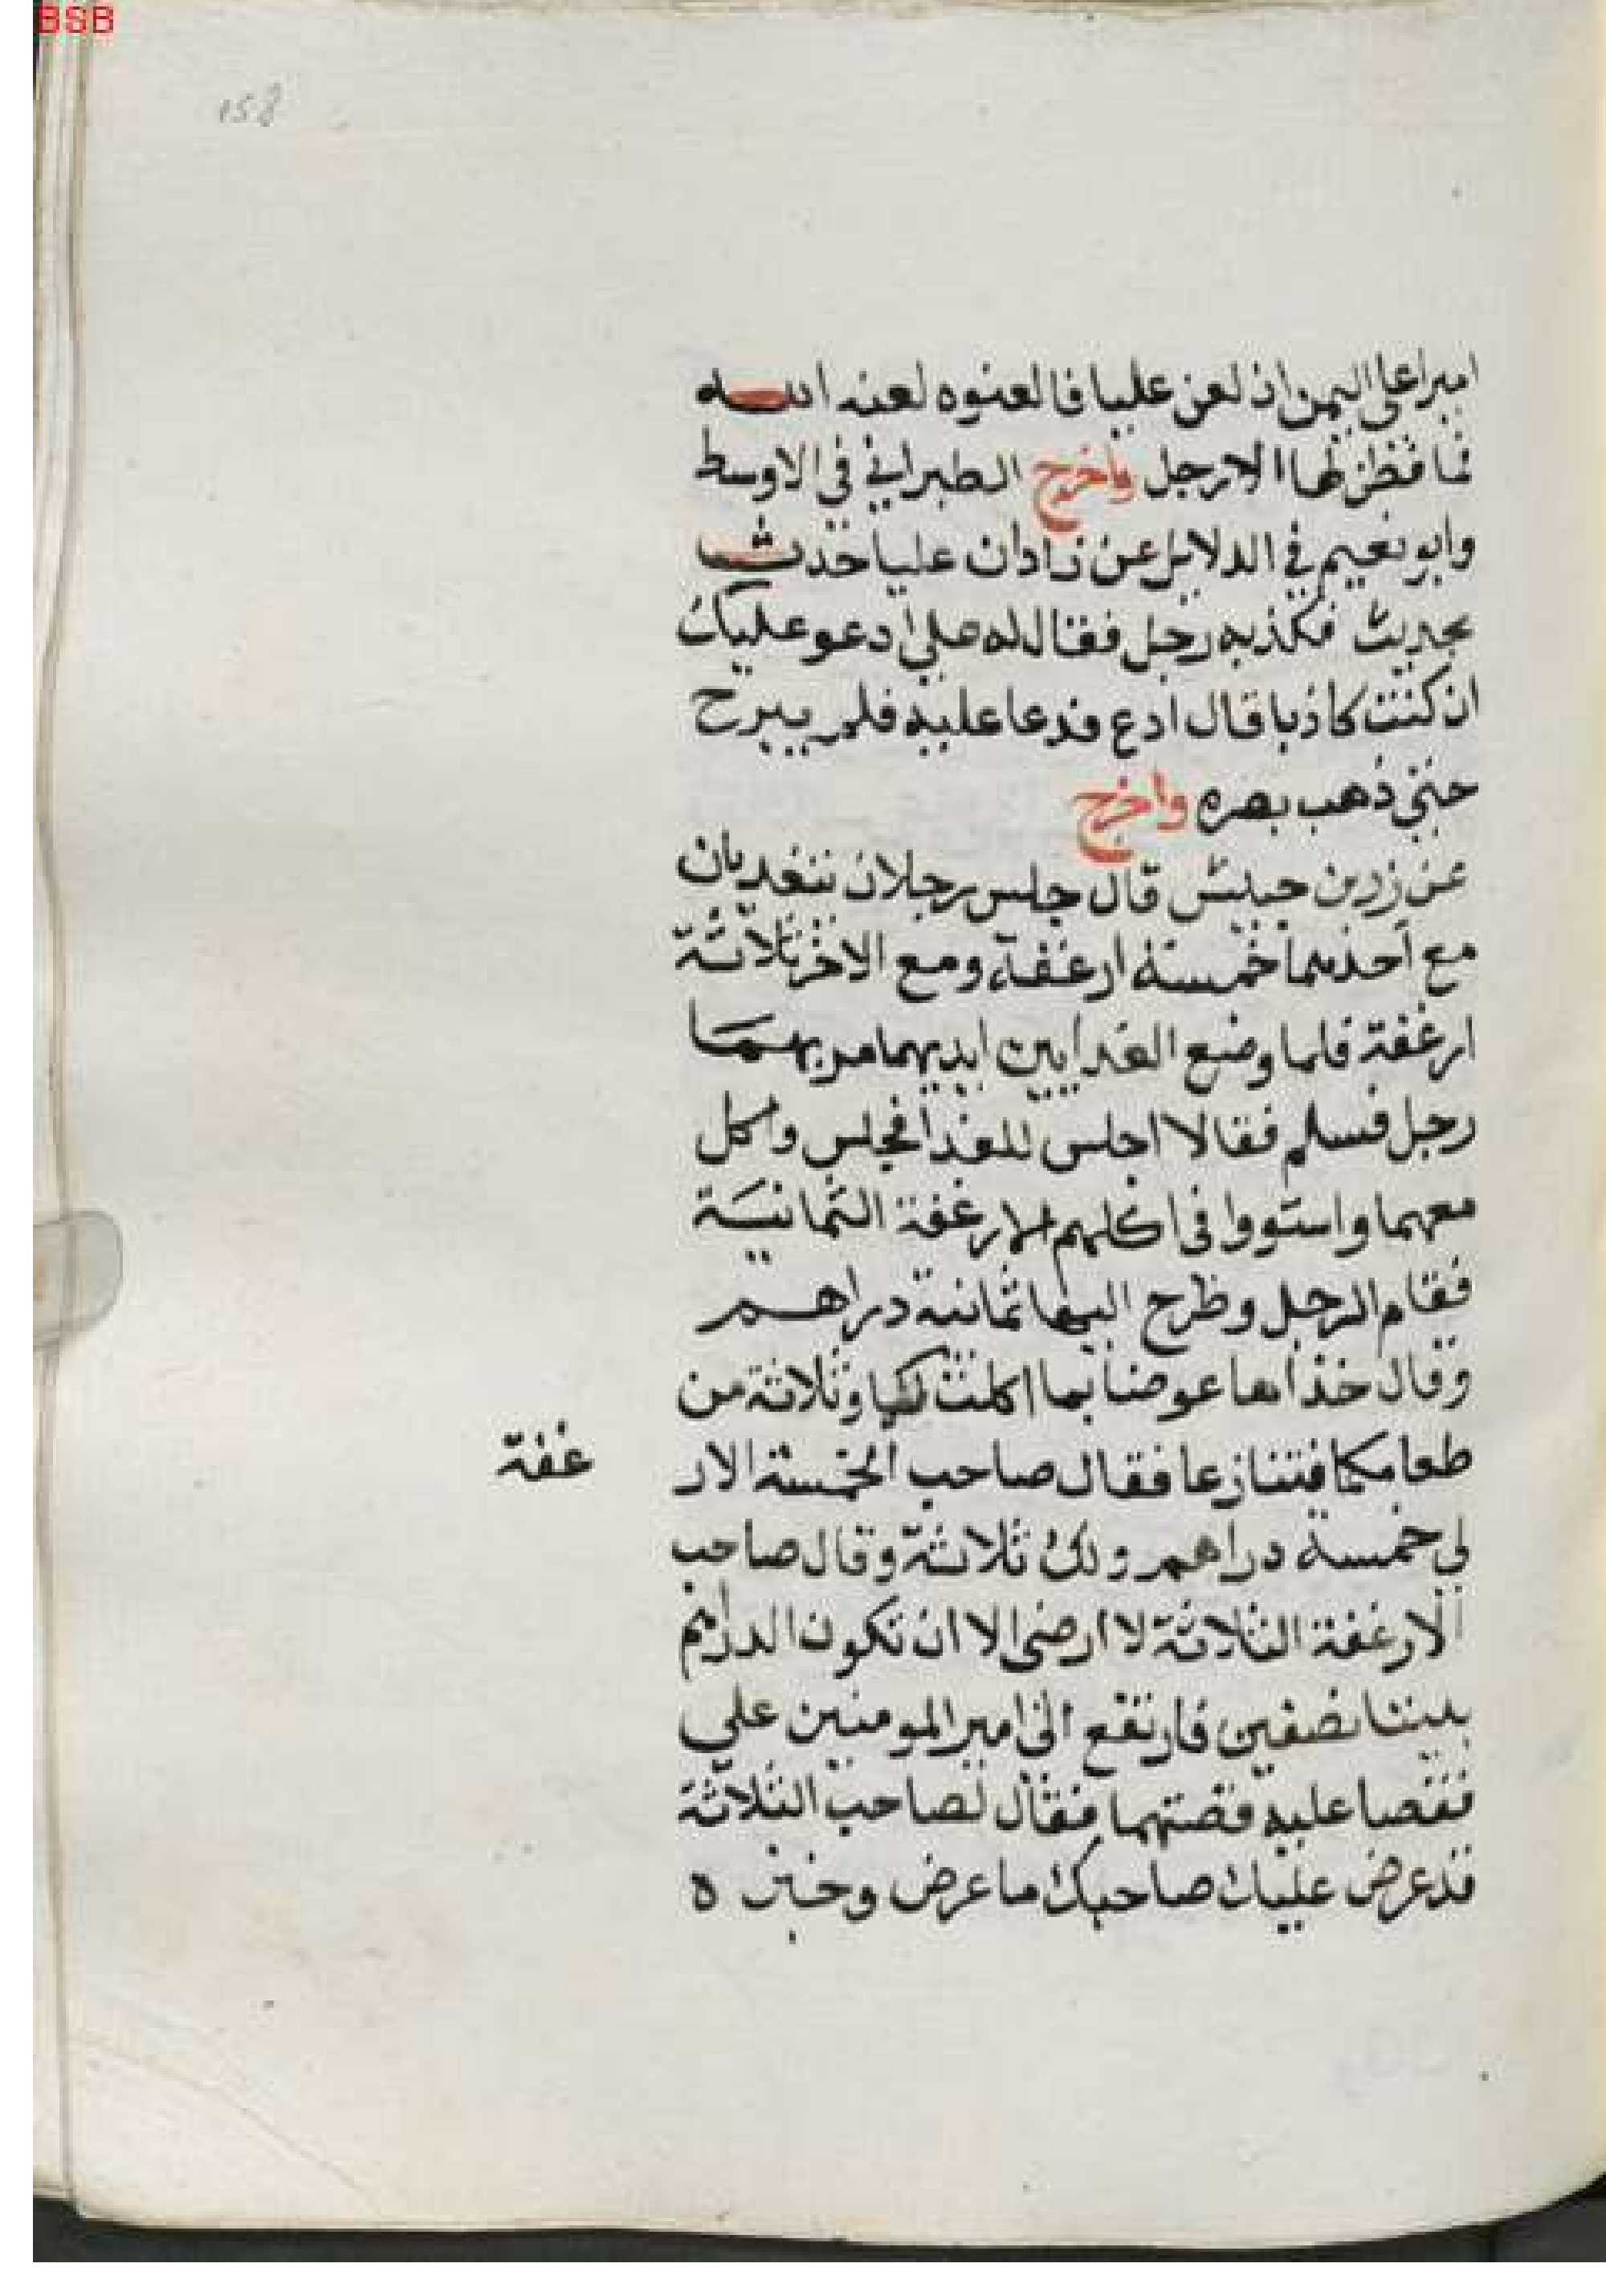 BSB
158
اميرا علي اليمن ان لعن عليا فالعنوه لعنه الله
فما فظن لها الا رجل واخرج الطبراني في الاوسط
وابو نعيم في الدلايل عن زادان عليا حدث
بحديث فكذبه رجل فقال له علي ادعو عليك
ان كنت كاذبا قال ادع فدعا عليه فلم يبرح
حتي ذهب بصره واخرج
عن زر بن حبيش قال جلس رجلان يتغديان
مع احدهما خمسة ارغفة ومع الاخر ثلاثة
ارغفة فلما وضع الغدا بين ايديهما مر بهما
رجل فسلم فقالا اجلس للغدا فجلس واكل
معهما واستووا في اكلهم الارغفة الثمانية
فقام الرجل وطرح اليهما ثمانية دراهم
وقال خذاها عوضا بما اكلت لكما وثلاثة من
طعامكما فتنازعا فقال صاحب الخمسة الار غفة
لي خمسة دراهم ولك ثلاثة وقال صاحب
الارغفة الثلاثة لا ارضي الا ان تكون الدراهم
بيننا نصفين فارتفع الي امير المومنين علي
فقصا عليه قصتهما فقال لصاحب الثلاثة
قد عرض عليك صاحبك ما عرض وخبز ه